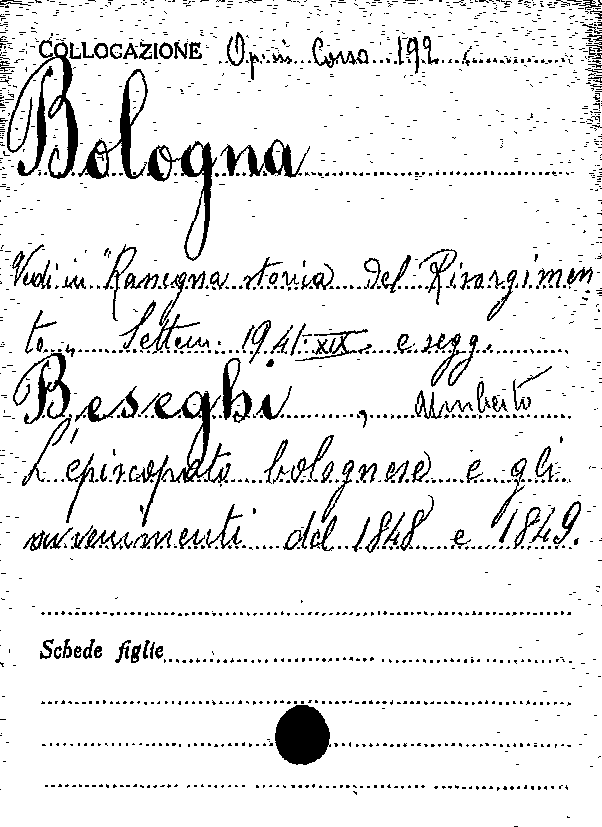 COLLOCAZIONE Op. in Corso 192
Bologna
Vedi in "Rassegna storica del Risorgimen
to" Settem. 1941-XIX e segg.
Beseghi, Umberto
L'episcopato bolognese e gli
avvenimenti del 1848 e 1849.
Schede figlie